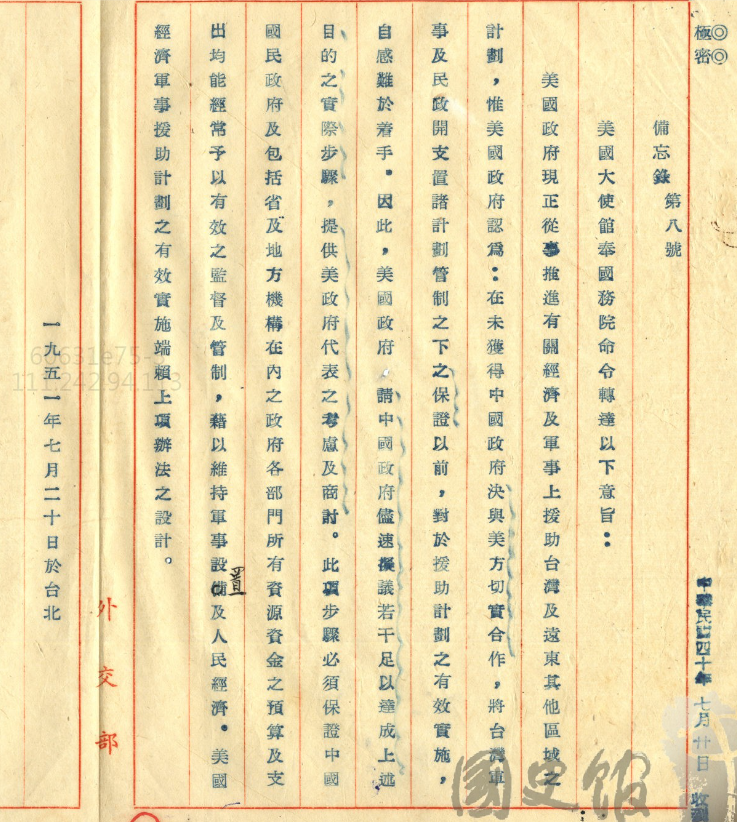 ◎◎
極密
中華民國四十年七月廿日收到
備忘錄 第八號
美國大使館奉國務院命令轉達以下意旨：
美國政府現正從事推進有關經濟及軍事上援助台灣及遠東其他區域之
計劃，惟美國政府認爲：在未獲得中國政府決與美方切實合作，將台灣軍
事及民政開支置諸計劃管制之下之保證以前，對於援助計劃之有效實施，
自感難於着手。因此，美國政府請中國政府儘速擬議若干足以達成上述
目的之實際步驟，提供美政府代表之考慮及商討。此項步驟必須保證中國
國民政府及包括省及地方機構在內之政府各部門所有資源資金之預算及支
出均能經常予以有效之監督及管制，藉以維持軍事設置及人民經濟。美國
經濟軍事援助計劃之有效實施端賴上項辦法之設計。
外交部
一九五一年七月二十日於台北
國史館